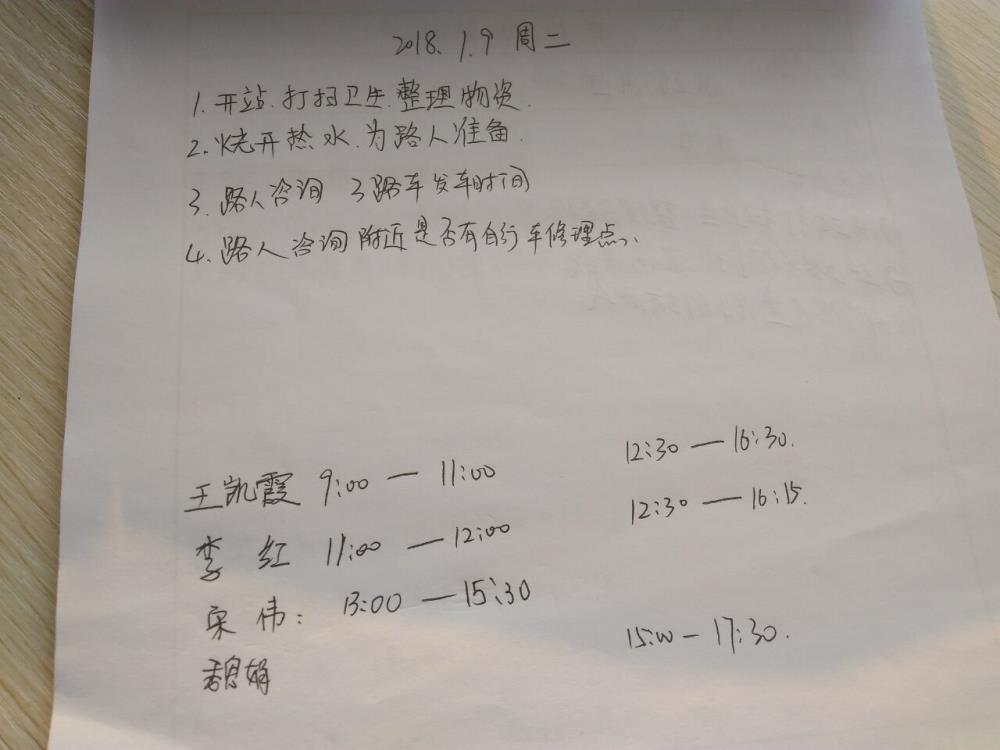 2018.1.9 周二
1.开站.打扫卫生.整理物资.
2.烧开热水.为路人准备.
3.路人咨询 3路车发车时间
4.路人咨询附近是否有自行车修理点、
王凯霞 9:00 — 11:00 12:30 — 16:30.
李红 11:00 — 12:00 12:30 — 16:15.
宋伟: 13:00 — 15:30
魏娟 15:00 — 17:30.